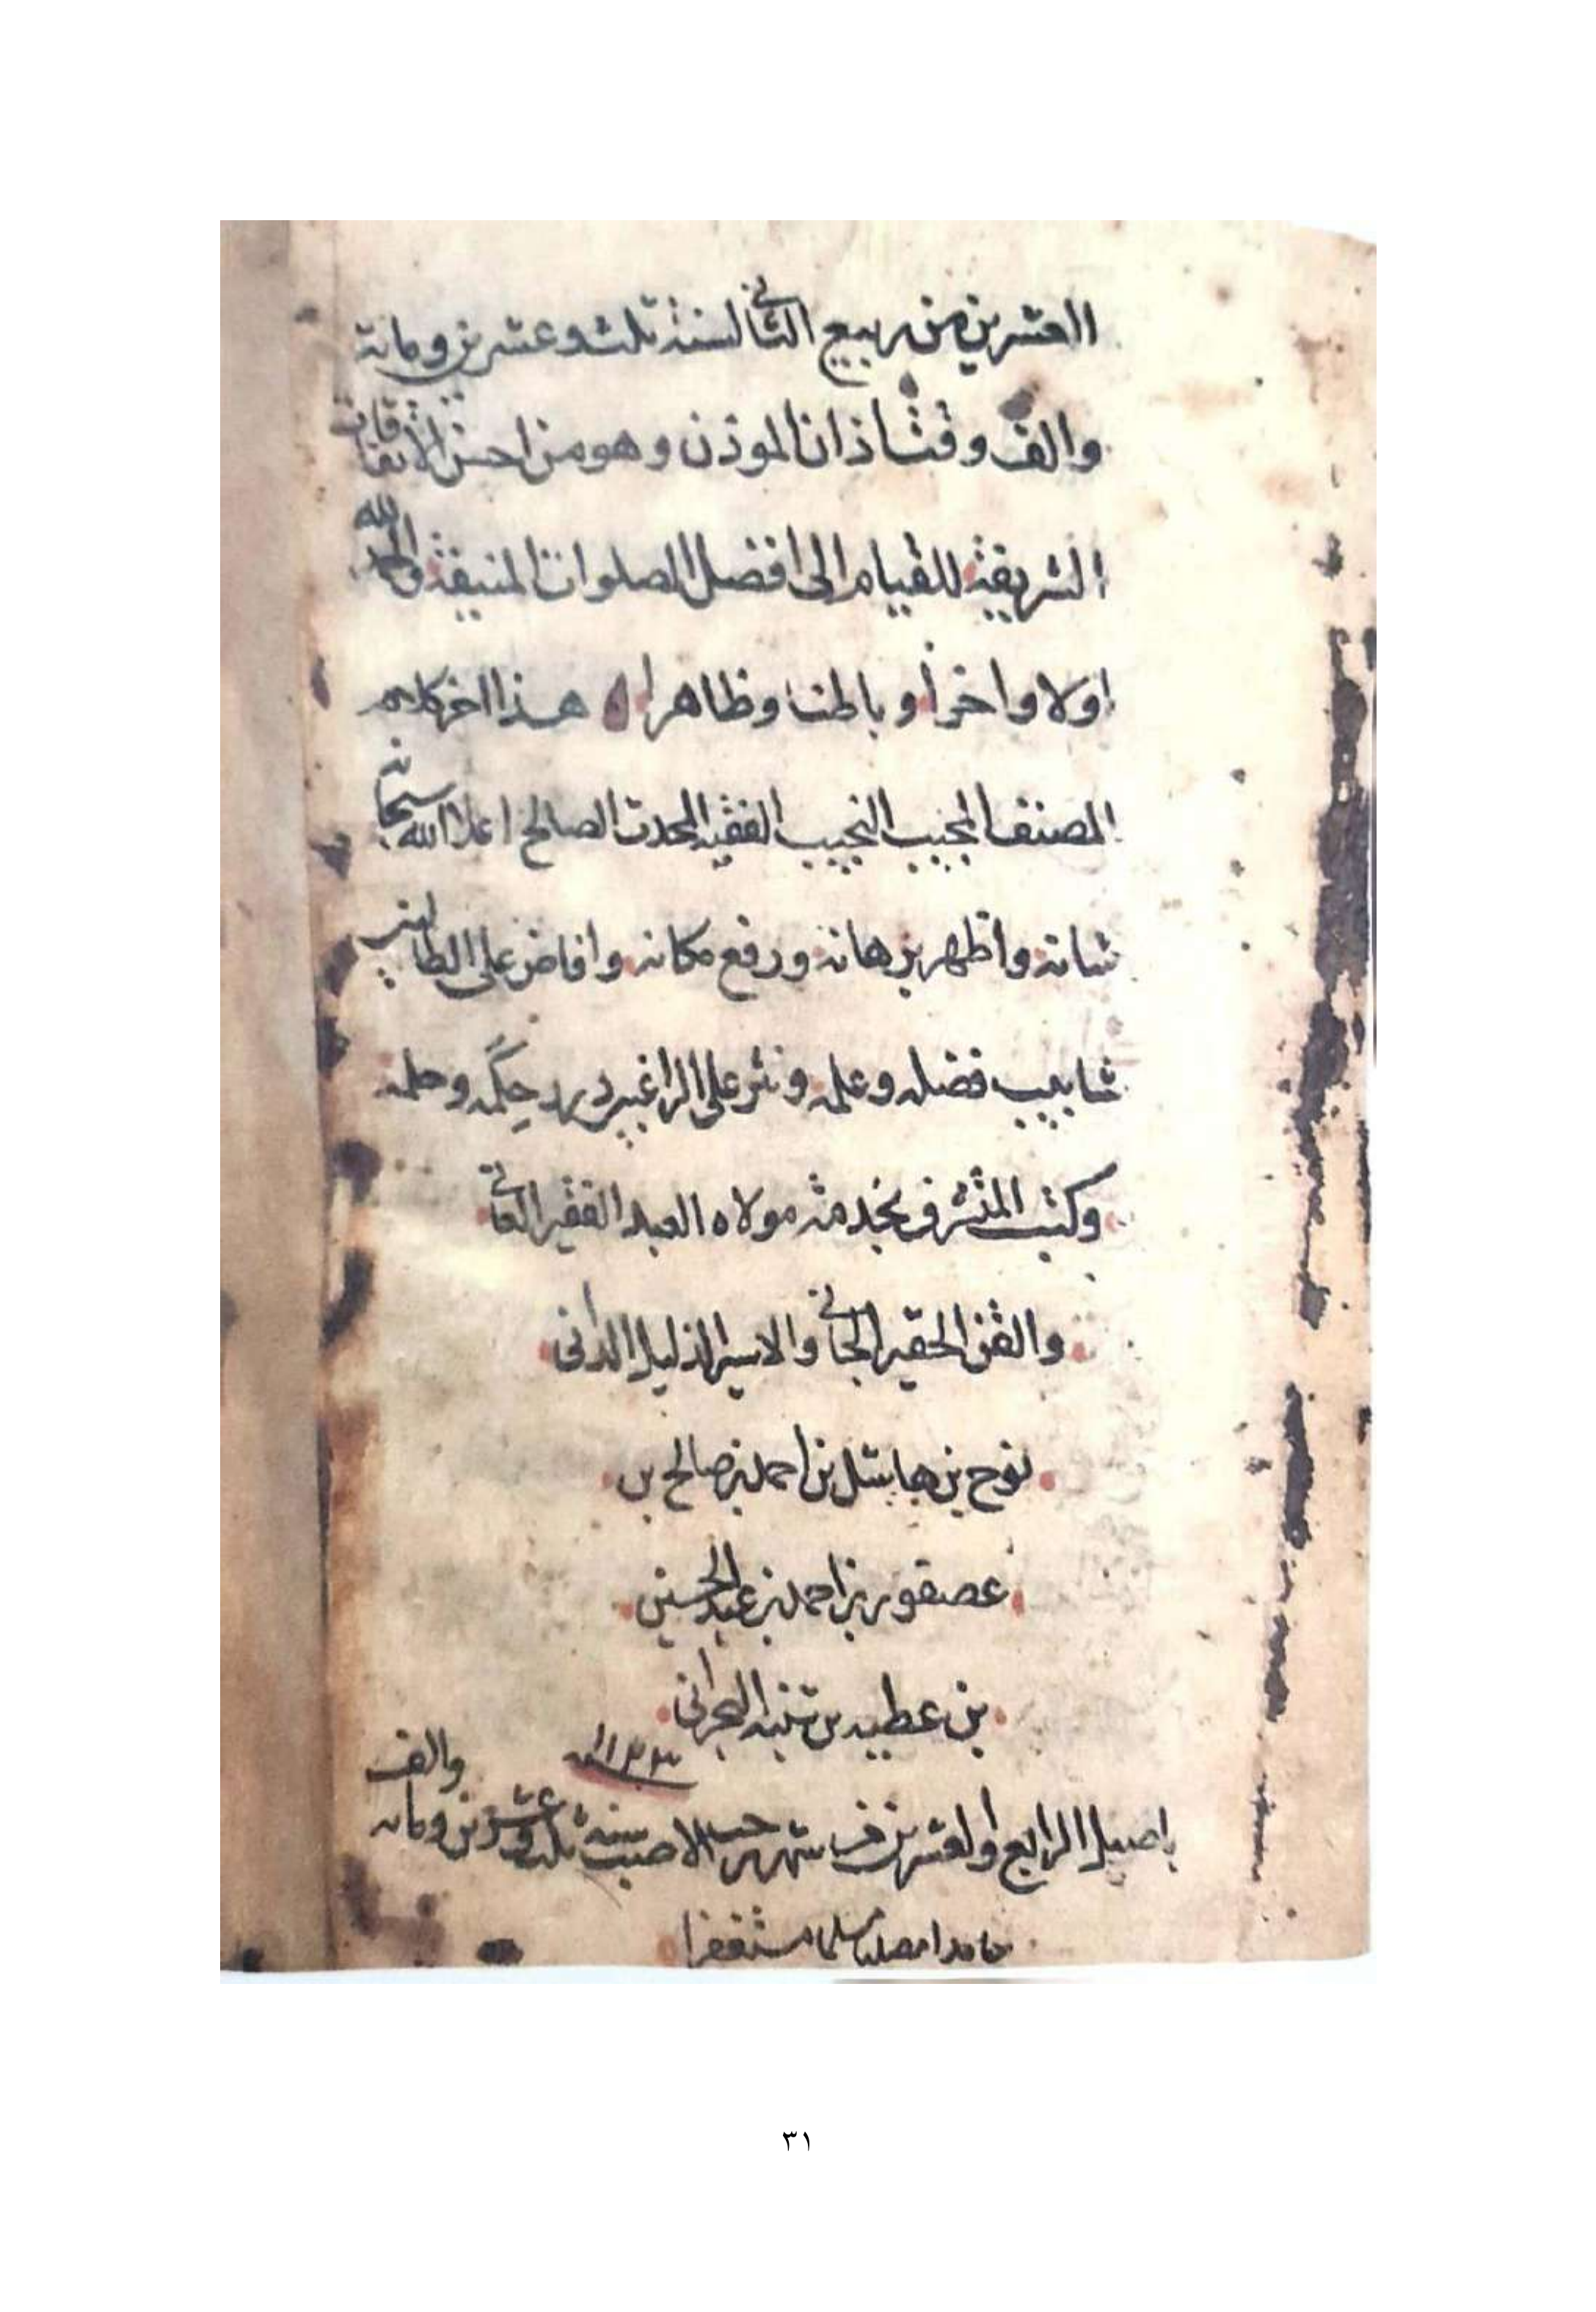 العشرين من ربيع الثاني لسنة ثلث وعشرين ومائة
والف وقت اذان الموذن وهو من احسن الاتفاقات
الشريفة للقيام الى افضل الصلوات المنيفة والحمد لله
اولا واخرا وباطنا وظاهرا ه هذا اخر كلام
المصنف المجيب النجيب الفقيه المحدث الصالح اعلا الله سبحانه
شانه واظهر برهانه ورفع مكانه وافاض على الطالبين
شابيب فضله وعلمه ونثر على الراغبين درر حكمه وحلمه
وكتب المتشرف بخدمة مولاه العبد الفقير الفاني
والقن الحقير الجاني والاسير الذليل الداني
نوح بن هاشل بن احمد بن صالح بن
عصفور بن احمد بن عبد الحسين
بن عطيه بن شنبه البحراني
١١٢٣ سنه
باصيل الرابع والعشرين من شهر رجب الاصب سنه ثلث وعشرين ومائه والف
حامدا مصليا مسلما مستغفرا
٣١